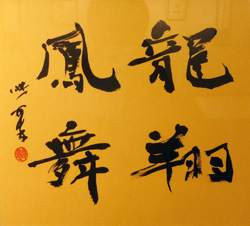 龍翔
鳳舞